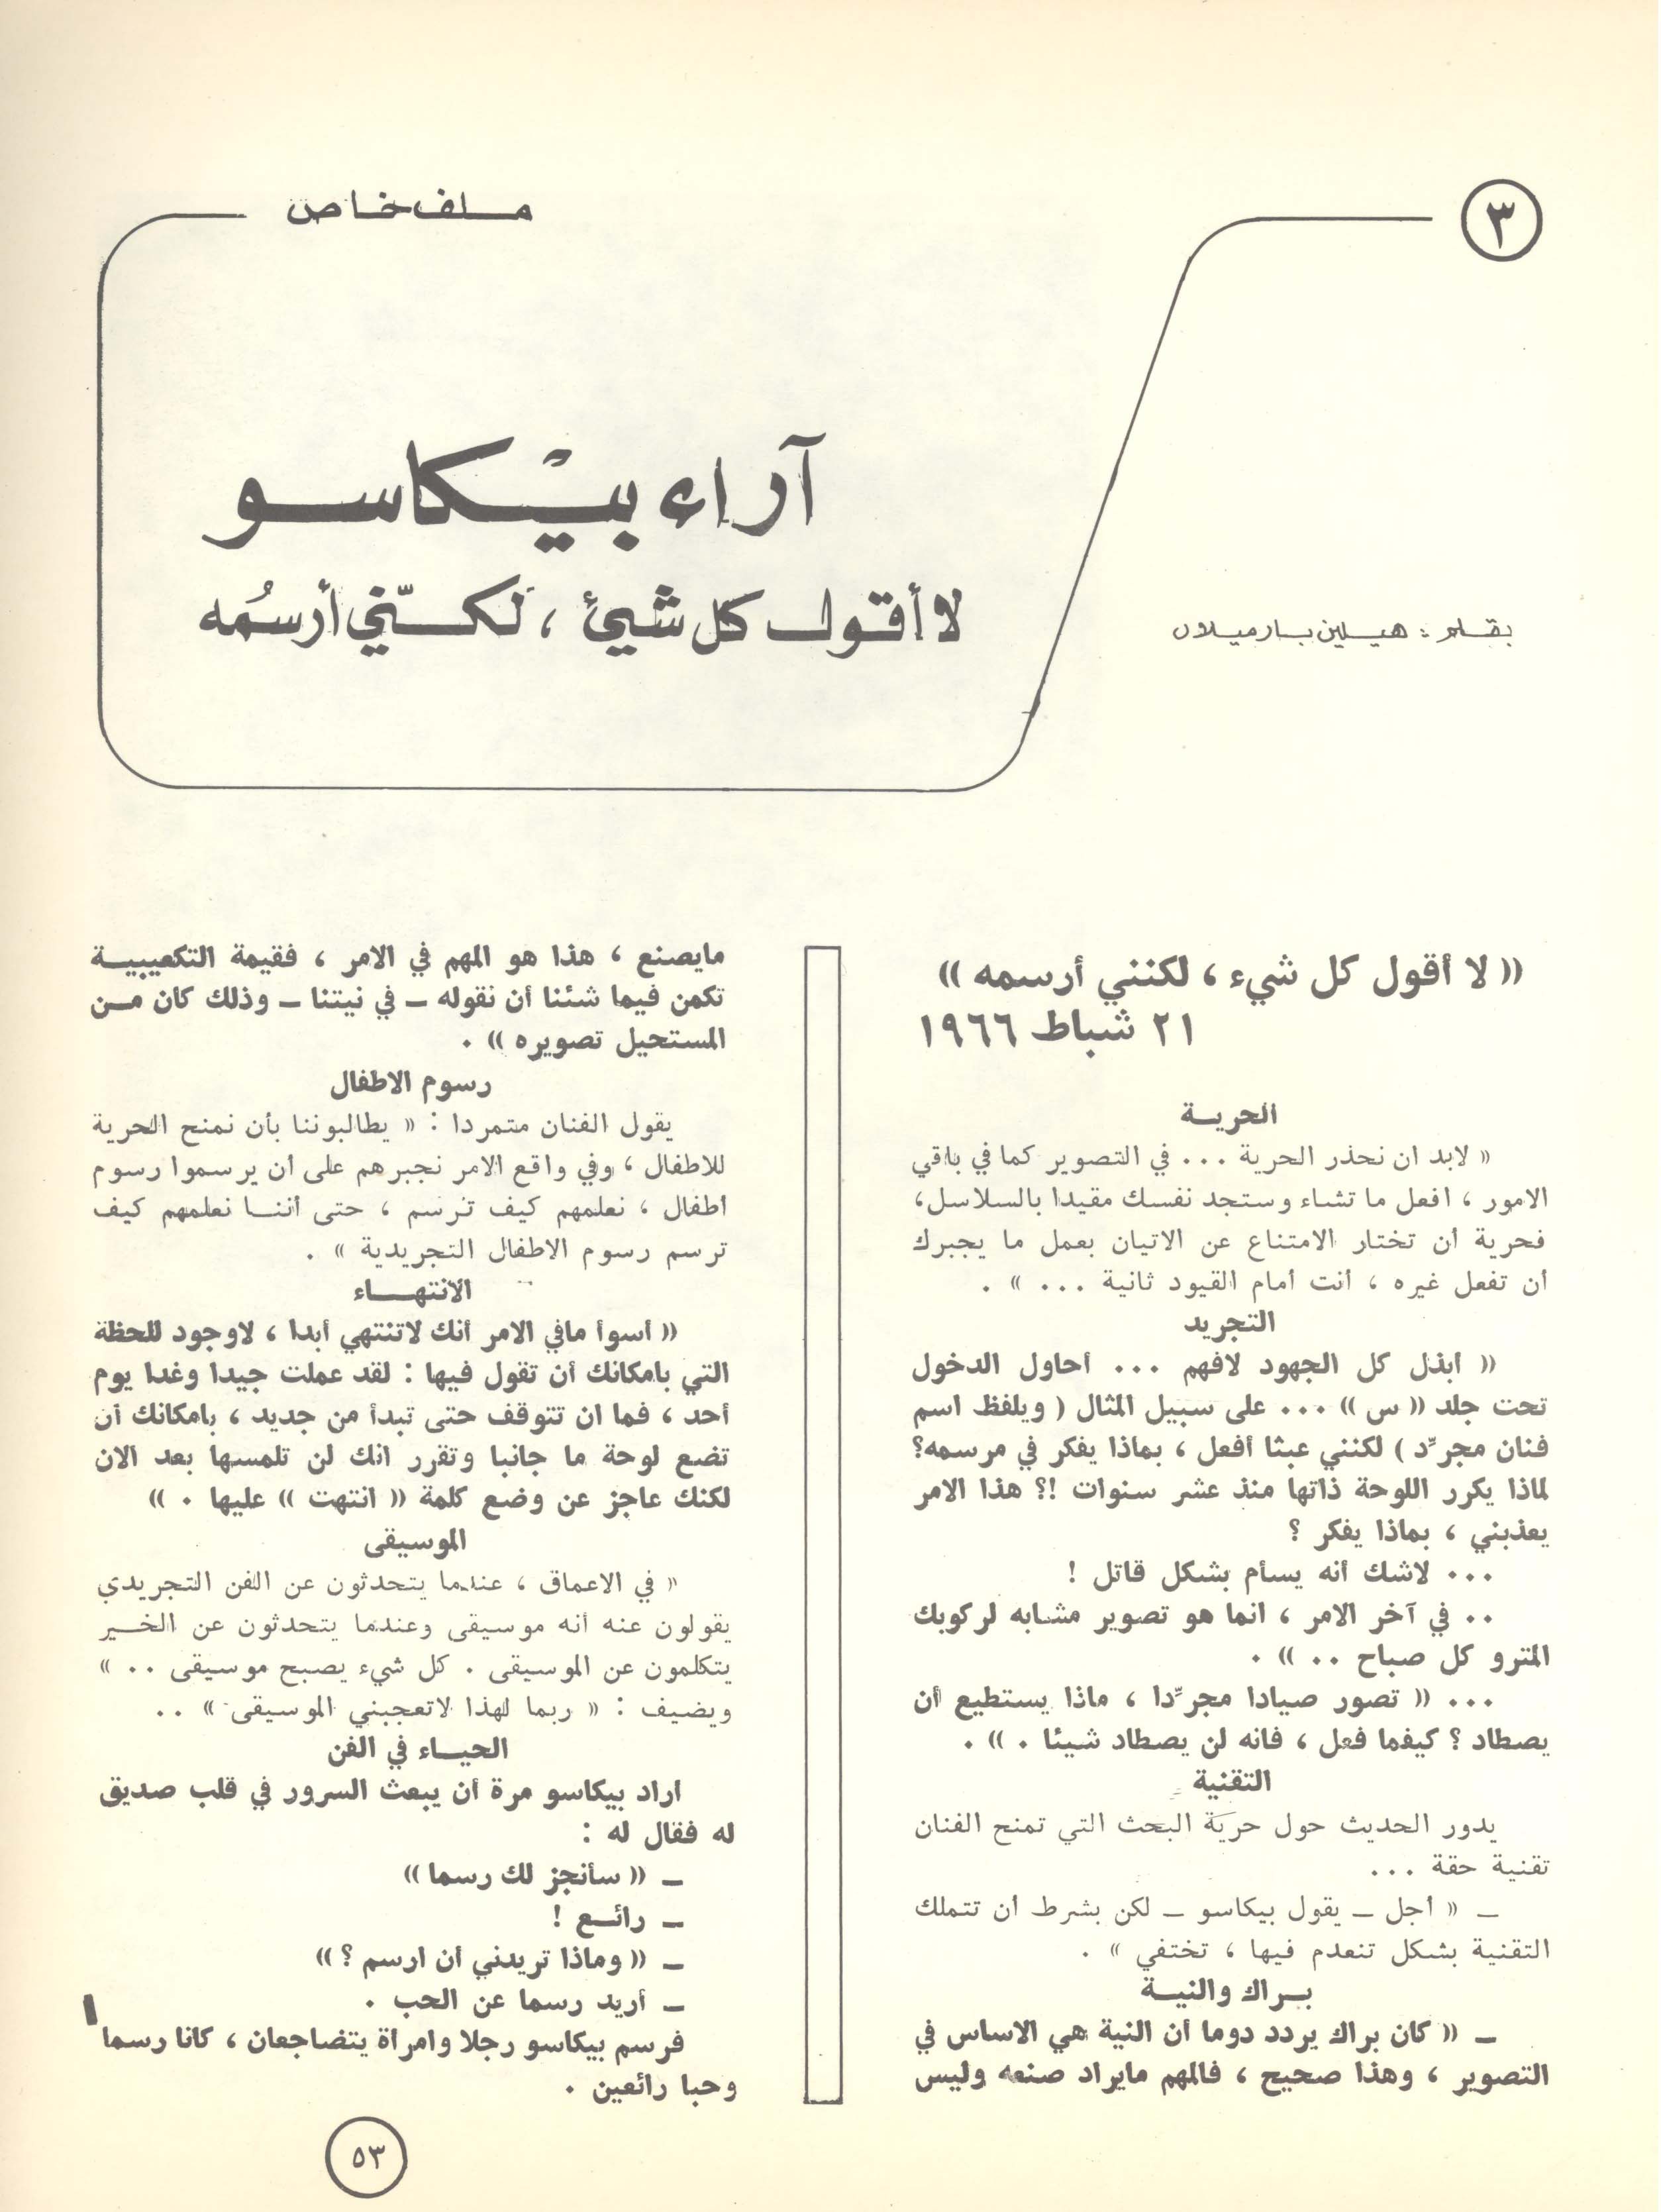 ٣
ملف خاص
آراء بيْكاسو
لا أقول كل شيئ ، لكنّني أرسُمه
بقلم : هيلين بارميلان
« لا أقول كل شيء ، لكنني أرسمه »
٢١ شباط ١٩٦٦
الحرية
« لابد ان نحذر الحرية ... في التصوير كما في باقي
الامور ، افعل ما تشاء وستجد نفسك مقيدا بالسلاسل،
فحرية أن تختار الامتناع عن الاتيان بعمل ما يجبرك
أن تفعل غيره ، أنت أمام القيود ثانية ... » .
التجريد
« ابذل كل الجهود لافهم ... أحاول الدخول
تحت جلد « س » ... على سبيل المثال ( ويلفظ اسم
فنان مجرّد ) لكنني عبثا أفعل ، بماذا يفكر في مرسمه؟
لماذا يكرر اللوحة ذاتها منذ عشر سنوات !؟ هذا الامر
يعذبني ، بماذا يفكر ؟
... لاشك أنه يسأم بشكل قاتل !
.. في آخر الامر ، انما هو تصوير مشابه لركوبك
المترو كل صباح .. » .
... « تصور صيادا مجرّدا ، ماذا يستطيع أن
يصطاد ؟ كيفما فعل ، فانه لن يصطاد شيئا . » .
التقنية
يدور الحديث حول حرية البحث التي تمنح الفنان
تقنية حقة ...
ـ « أجل ـ يقول بيكاسو ـ لكن بشرط أن تتملك
التقنية بشكل تنعدم فيها ، تختفي » .
براك والنية
ـ « كان براك يردد دوما أن النية هي الاساس في
التصوير ، وهذا صحيح ، فالمهم مايراد صنعه وليس
مايصنع ، هذا هو المهم في الامر ، فقيمة التكعيبية
تكمن فيما شئنا أن نقوله ـ في نيتنا ـ وذلك كان من
المستحيل تصويره » .
رسوم الاطفال
يقول الفنان متمردا : « يطالبوننا بأن نمنح الحرية
للاطفال ، وفي واقع الامر نجبرهم على أن يرسموا رسوم
أطفال ، نعلمهم كيف ترسم ، حتى أننا نعلمهم كيف
ترسم رسوم الاطفال التجريدية » .
الانتهاء
« أسوأ مافي الامر أنك لاتنتهي أبدا ، لاوجود للحظة
التي بامكانك أن تقول فيها : لقد عملت جيدا وغدا يوم
أحد ، فما ان تتوقف حتى تبدأ من جديد ، بامكانك أن
تضع لوحة ما جانبا وتقرر انك لن تلمسها بعد الان
لكنك عاجز عن وضع كلمة « انتهت » عليها . »
الموسيقى
« في الاعماق ، عندما يتحدثون عن الفن التجريدي
يقولون عنه أنه موسيقى وعندما يتحدثون عن الخير
يتكلمون عن الموسيقى . كل شيء يصبح موسيقى .. »
ويضيف : « ربما لهذا لاتعجبني الموسيقى » ..
الحياء في الفن
اراد بيكاسو مرة أن يبعث السرور في قلب صديق
له فقال له :
ـ « سأنجز لك رسما »
ـ رائع !
ـ « وماذا تريدني أن ارسم ؟ »
ـ أريد رسما عن الحب .
فرسم بيكاسو رجلا وامراة يتضاجعان ، كانا رسما
وحبا رائعين .
٥٣